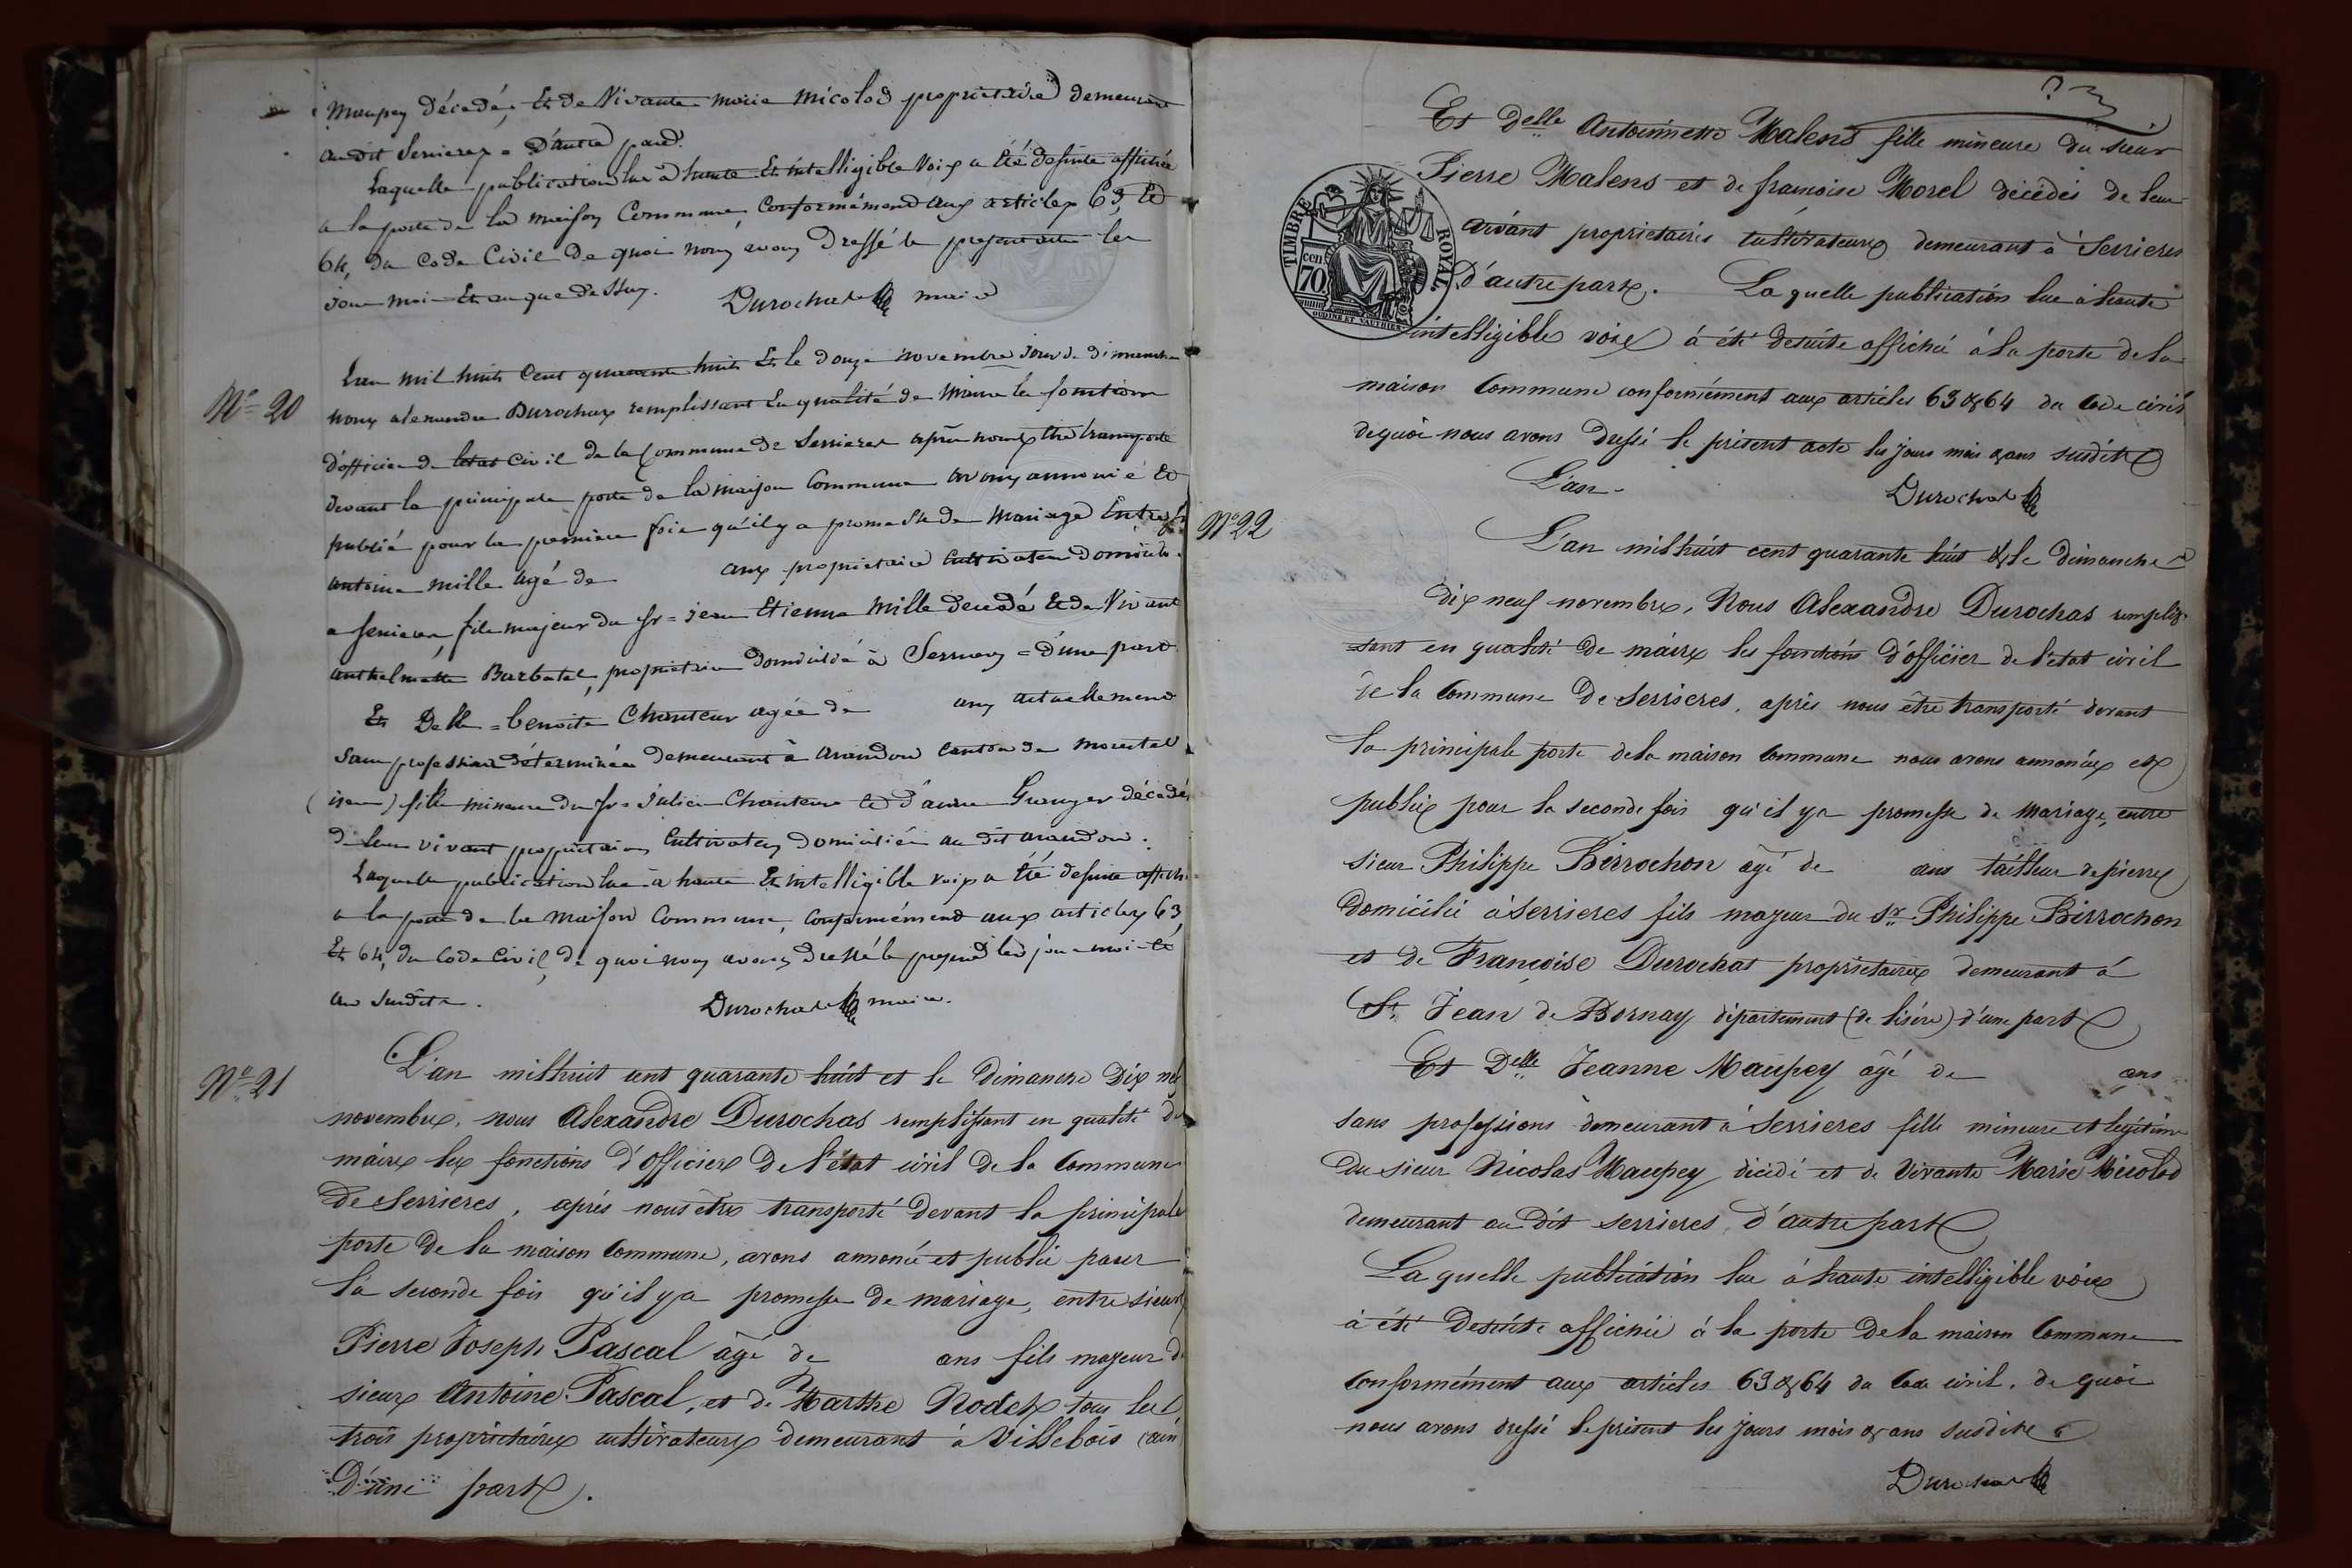 Maupey décédé, Et de Vivante marie micolod propriétaire demeurant
audit Serrieres = D'autre part.
Laquelle publication lue à haute Et intelligible Voix a Eté desuite affichée
a la porte de la maison Commune, Conformément aux articles 63, Et
64, du Code Civil De quoi nous avons Dressé le present acte les
jour moi Et an que dessus. Durochat maire
N° 20
L'an mil huit Cent quarante huit Et le douze novembre jour de dimanche
nous alexandre Durochat remplissant En qualité de Maire les fonctions
d'officier de letat Civil de la Commune de Serrieres après nous être transporté
devant la principale porte de la maison Commune avons annoncé Et
publié pour la premiere fois qu'il y a promesse de Mariage Entre sr
antoine mille agé de ans propriétaire Cultivateur domicilié
a serrieres, fils majeur du sr = jean Etienne Mille decedé Et de Vivante
anthelmette Barbatel, propriétaire domicilié à Serrieres = d'une part
Et Delle = benoite Chanteur agée de ans actuellement
Sans profession déterminée demeurant à arandon canton de morestel
(isere) fille mineure du sr = Julien Chanteur et d'anne Granger décédés
de leur vivant propriétaires Cultivateurs domiciliés au dit arandon.
Laquelle publication lue à haute Et intelligible voix a Eté desuite affichée
a la porte de la maison Commune, Conformément aux articles 63,
Et 64, du Code Civil, de quoi nous avons dressé le present les jour moi et
an susdits. Durochat maire.
N° 21
L'an mil huit cent quarante huit et le dimanche Dix neuf
novembre, nous Alexandre Durochas remplissant en qualité de
maire les fonctions d'officier de l'état civil de la Commune
de Serrieres, après nous être transporté devant la principale
porte de la maison Commune, avons annoncé et publié pour
la seconde fois qu'il y a promesse de mariage, entre sieur
Pierre Joseph Pascal âgé de ans fils majeur de
sieur Antoine Pascal, et de Marthe Rodet tous les
trois propriétaires cultivateurs demeurant à Villebois (ain)
D'une part.
23
Et Delle Antoinette Malens fille mineure du sieur
Pierre Malens et de francoise Morel décédés de leur
vivant propriétaires cultivateurs demeurant à Serrieres
D'autre part. La quelle publication lue à haute
intelligible voix à été desuite affichée à la porte de la
maison Commune conformément aux articles 63 & 64 du Code civil
de quoi nous avons dressé le présent acte les jours mois & ans susdits
L'an Durochat
TIMBRE ROYAL
cen
70
OUDINE ET VAUTHIER
N° 22
L'an mil huit cent quarante huit & le dimanche
dix neuf novembre, Nous Alexandre Durochas remplis-
sant en qualité de maire les fonctions d'officier de l'etat civil
de la Commune de Serrieres, après nous être transporté devant
la principale porte de la maison Commune nous avons annoncé et
publié pour la seconde fois qu'il y a promesse de Mariage, entre
sieur Philippe Birrochon âgé de ans tailleur de pierre
domicilié à Serrieres fils majeur du Sr Philippe Birrochon
et de Francoise Durochat propriétaires demeurant à
St Jean de Bornay département (de l'isère) d'une part
Et Delle Jeanne Maupey âgé de ans
sans professions demeurant à Serrieres fille mineure et legitime
du sieur Nicolas Maupey décédé et de Vivante Marie Micolod
demeurant au dit serrieres, d'autre part
La quelle publication lue à haute intelligible voix
à été desuite affichée à la porte de la maison Commune
Conformément aux articles 63 & 64 du Code civil, de quoi
nous avons dressé le présent les jours mois & ans susdits
Durochat